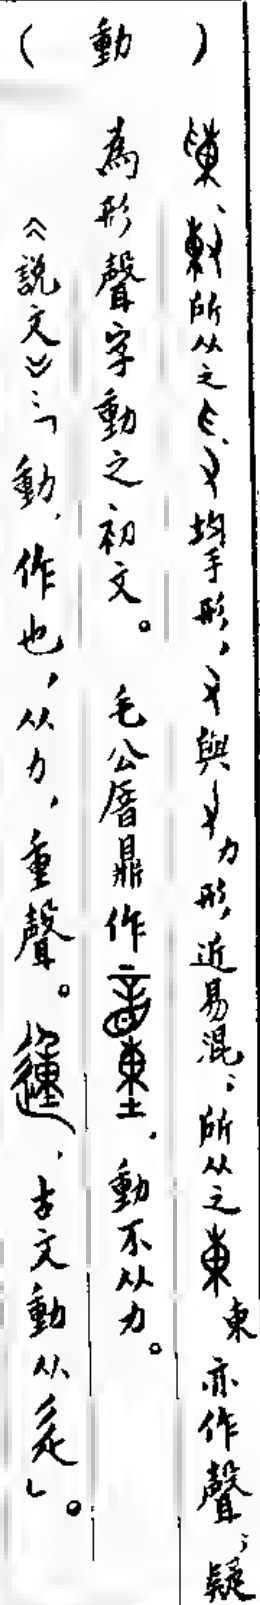 （動）
所从之 均手形，與 力形，近易混；所从之 東 亦作聲，疑
為形聲字動之初文。毛公厝鼎作 ，動不从力。
《說文》：「動，作也，从力，重聲。 ，古文動从辵」。